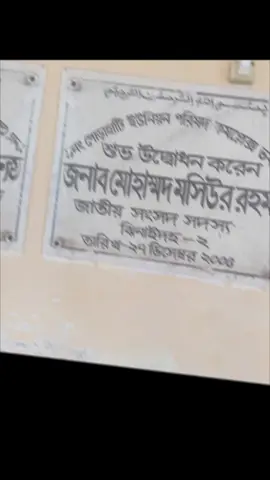 পোড়াহাটি ইউনিয়ন পরিষদ কমপ্লেক্স
শুভ উদ্বোধন করেন
জনাব মোহাম্মদ মসিউর রহম
জাতীয় সংসদ সদস্য
ঝিনাইদহ - ২
তারিখ - ২৭ ডিসেম্বর ২০০৩